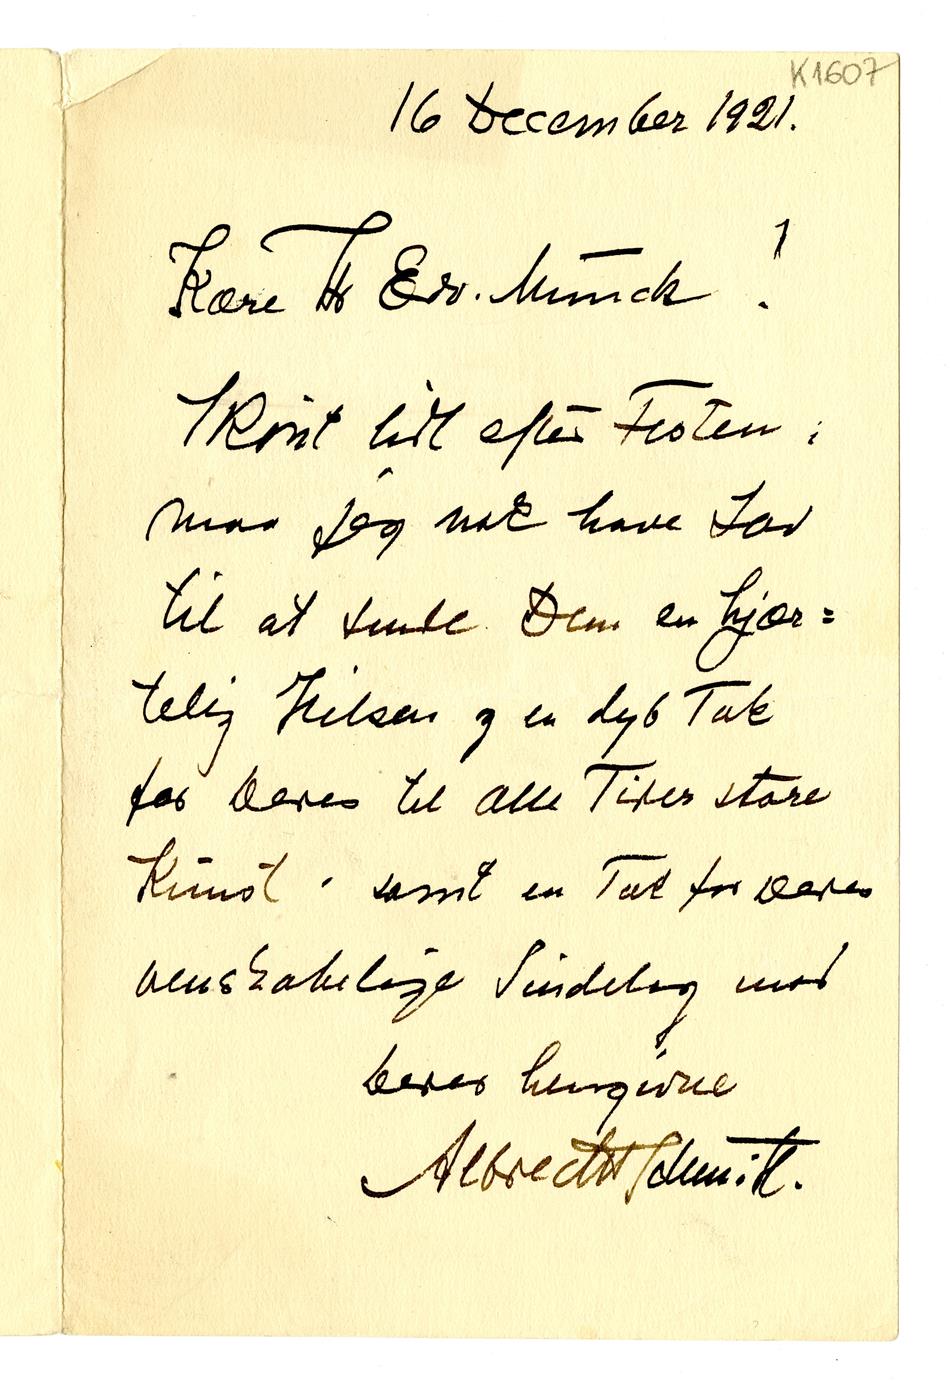 K1607
16 December 1921.
Kære Hr Edv. Munch !
Skönt lidt efter Festen :
maa jeg nok have Lov
til at sende Dem en hjær=
telig Hilsen og en dyb Tak
for Deres til alle Tider store
Kunst - samt en Tak for Deres
venskabelige Sindelag mod
Deres hengivne
Albrecht Schmidt.